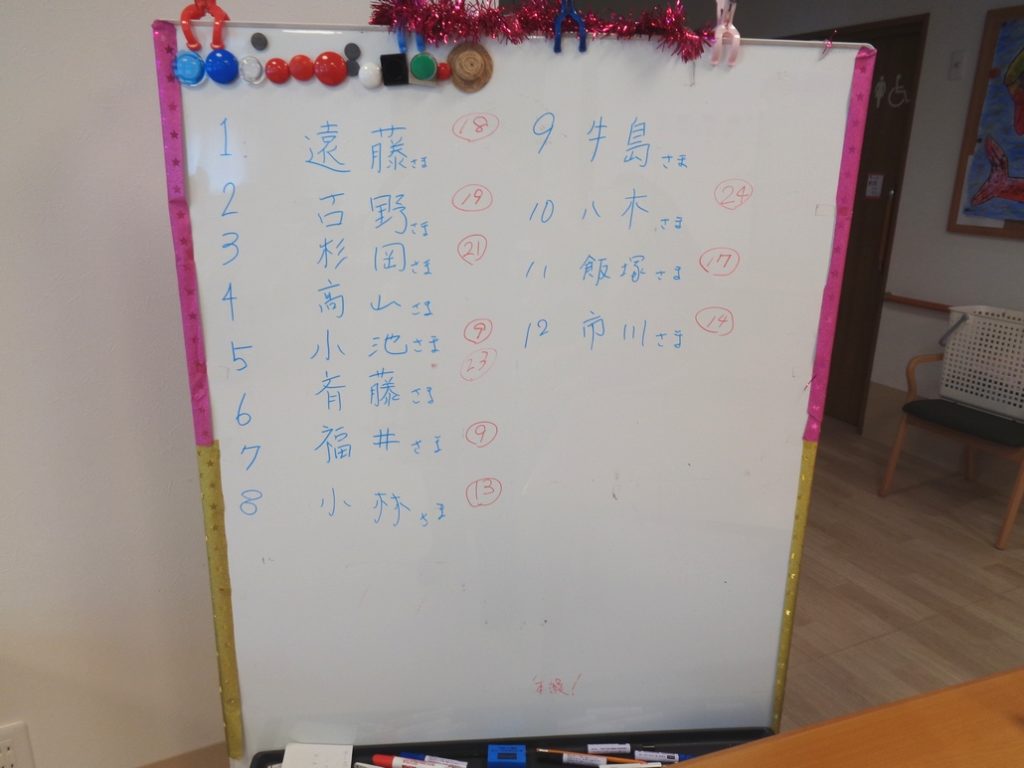 1 遠藤さま ⑱
2 古野さま ⑲
3 杉岡さま ㉑
4 高山さま
5 小池さま ⑨
6 斉藤さま ㉓
7 福井さま ⑨
8 小林さま ⑬
9 牛島さま
10 八木さま ㉔
11 飯塚さま ⑰
12 市川さま ⑭